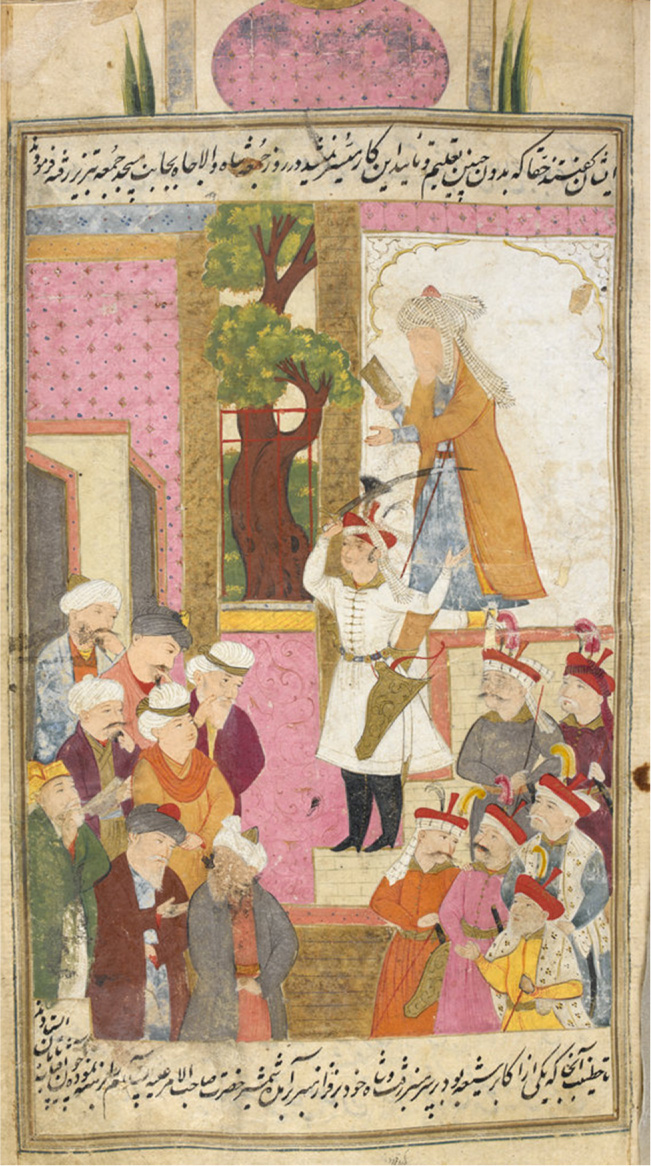 ایشان گفتند حقا که بدون چنین تعلیم و تأیید این کار میسر نمیشد در روز جمعه شاه والاجاه بجانب مسجد جمعه تبریز رفته فرمودند
تا خطیب آنجا که یکی از اکابر شیعه بود بر سر منبر رفت و شاه خود بر فراز منبر برآمده شمشیر حضرت صاحب الامر علیه السلام را برهنه نموده چون آفتاب تابان
ایستادند